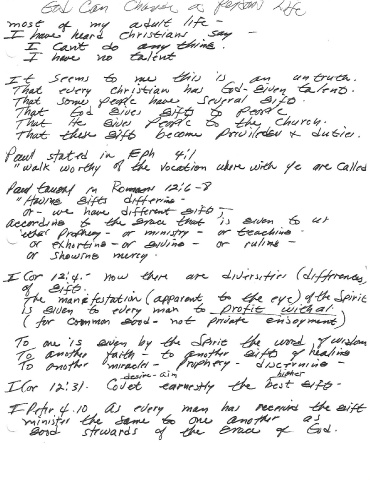 God Can Change a Persons Life
most of my adult life -
I have heard Christians say -
I can't do any thing.
I have no talent
It seems to me this is an untruth.
That every christian has God-given talent.
That some people have several gifts.
That God gives gifts to people
That He gives people to the church.
That these gifts become privileges & duties.
Paul stated in Eph 4:1
"walk worthy of the vocation where with ye are called
Paul taught in Romans 12:6-8
"Having gifts differing -
or - we have different gifts -
according to the grace that is given to us
prophecy - or ministry - or teaching
or exhorting - or giving - or ruling -
or showing mercy.
I Cor 12:4 - now there are diversities (differences)
of gifts.
The manifestation (apparent to the eye) of the Spirit
is given to every man to profit withal
(for common good - not private enjoyment)
To one is given by the Spirit the word of wisdom
To another faith - to another gifts of healing
To another miracles - prophecy - discerning -
desire - aim higher
I Cor 12:31. Covet earnestly the best gifts -
I Peter 4.10 As every man has received the gift
minister the same to one another as
good stewards of the grace of God.